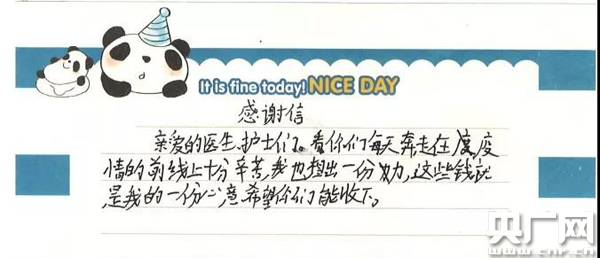 It is fine today! NICE DAY
感谢信
亲爱的医生、护士们。看你们每天奔走在度疫
情的前线上十分辛苦,我也想出一份力,这些钱就
是我的一份心意希望你们能收下。
央广网
www.cnr.cn